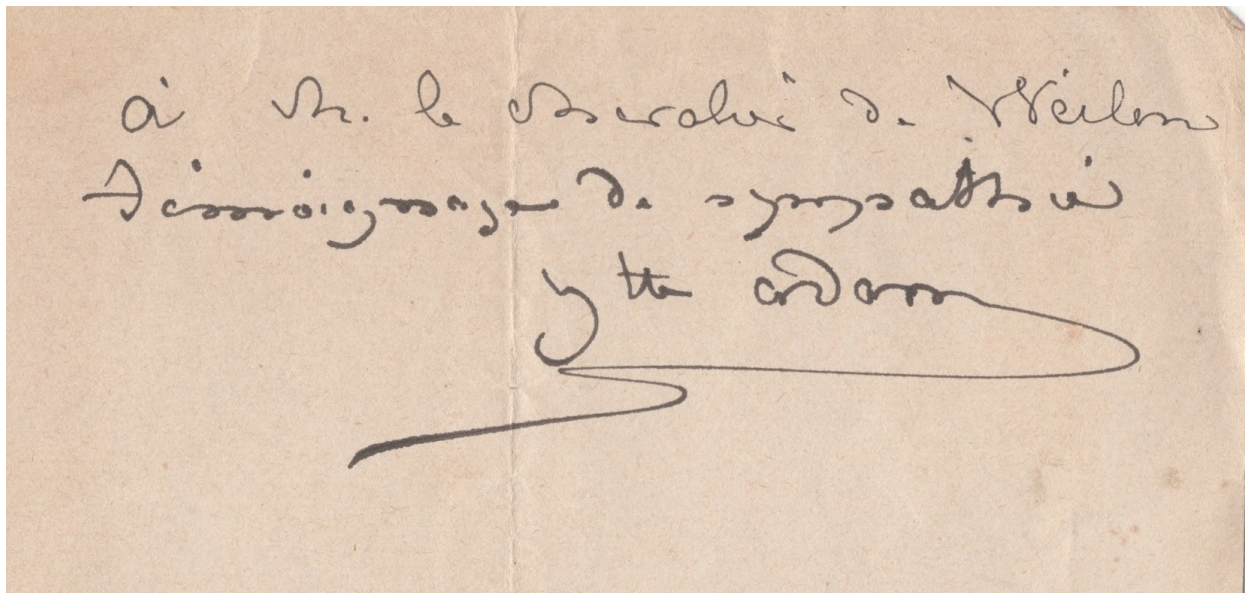 à M. le Marchis de Weilen
témoignage de sympathie
Ytte Adam